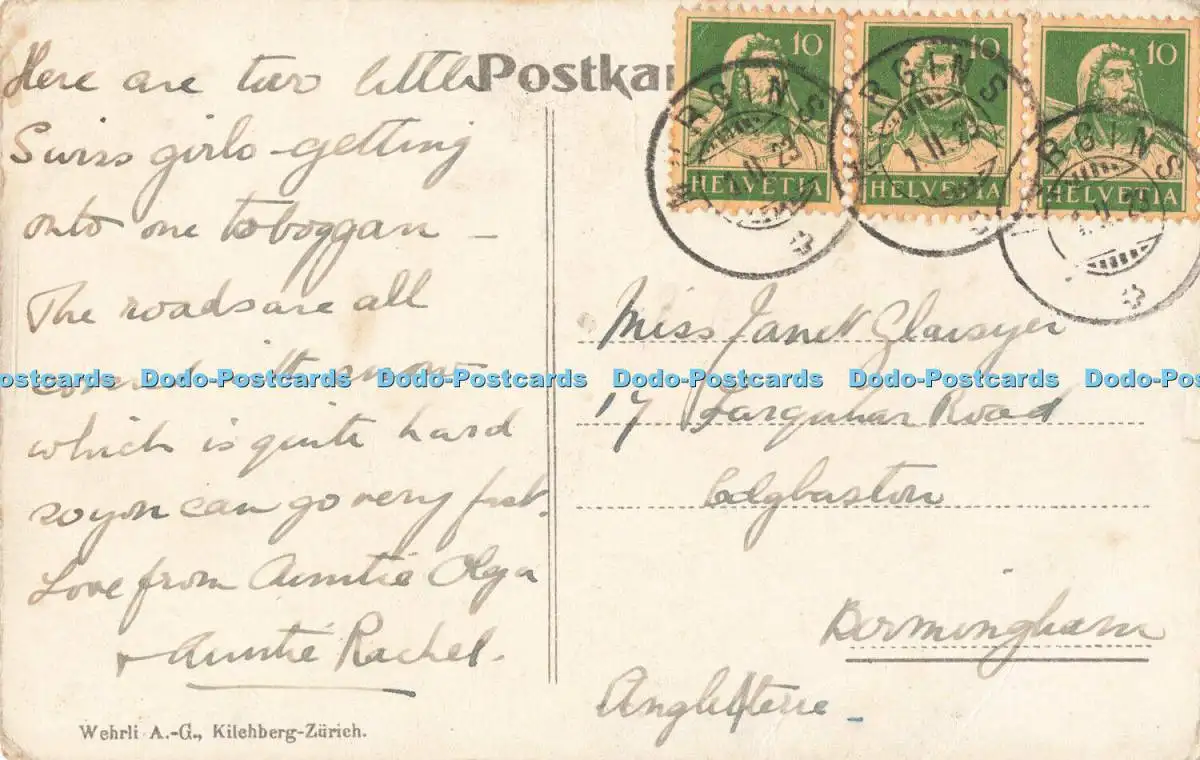 Here are two little
Swiss girls getting
onto one toboggan –
The roads are all
covered with snow
which is quite hard
so you can go very fast.
Love from Auntie Olga
+ Auntie Rachel.
Wehrli A.-G., Kilchberg-Zürich.
Postkar
10 10 10
HELVETIA HELVETIA HELVETIA
MORGINS
1.II.23
MORGINS
1.II.23
MORGINS
Miss Janet Glaisyer
17 Farquhar Road
Edgbaston
Birmingham
Angleterre –
Dodo-Postcards Dodo-Postcards Dodo-Postcards Dodo-Postcards Dodo-Postcards